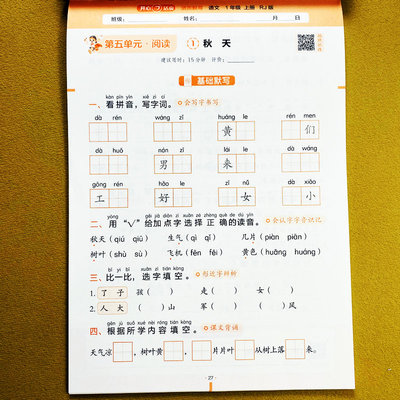 语文 1年级 上册 RJ版
班级: 姓名: 月 日
第五单元·阅读 1 秋天
建议用时:15分钟 计食:
基础默写
kàn pīn yīn xiě zì cí
一、看拼音,写字词。 会写字书写
dà rén wáng zǐ huáng lè rén men
黄 们
dà huǒ nán zǐ lái le dà rén
男 来
gōng rén hǎo zǐ nǚ zǐ dà xiǎo
工 好 女 小
yòng gěi jiā diǎn zì xuǎn zé zhèng què de dú yīn
二、用“√”给加点字选择正确的读音。 会认字字音识记
秋天(qiú qiū) 生气(qì qǐ) 几片(piàn piān)
树叶(shù sù) 飞机(fēn fēi) 黄色(huāng huáng)
bǐ yī bǐ xuǎn zì tián kòng
三、比一比,选字填空。 形近字辨析
1. 了 子 孩( ) 走( ) 女( )
2. 人 大 ( )山 军( ) ( )风
gēn jù suǒ xué nèi róng tián kòng
四、根据所学内容填空。 课文背诵
天气凉 ,树叶黄 , 片片叶 从树上落 来。
27